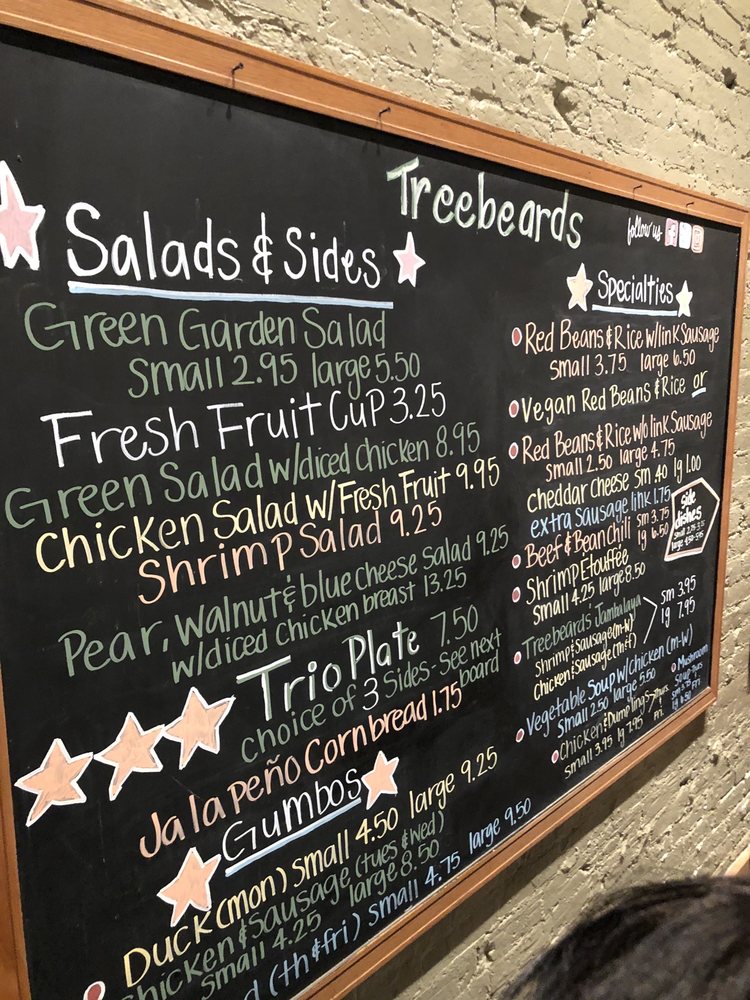 Treebeards
follow us
Salads & Sides
Green Garden Salad
small 2.95 large 5.50
Fresh Fruit Cup 3.25
Green Salad w/diced chicken 8.95
Chicken Salad w/Fresh Fruit 9.95
Shrimp Salad 9.25
Pear, walnut & blue cheese Salad 9.25
w/diced chicken breast 13.25
Trio Plate 7.50
choice of 3 Sides - See next
board
Jalapeño Cornbread 1.75
Gumbos
Duck (mon) small 4.50 large 9.25
chicken & sausage (tues & wed)
small 4.25 large 8.50
(th & fri) small 4.75 large 9.50
Specialties
Red Beans & Rice w/link Sausage
small 3.75 large 6.50
Vegan Red Beans & Rice or
Red Beans & Rice w/o link Sausage
small 2.50 large 4.75
cheddar cheese sm .40 lg 1.00
extra sausage link 1.75
Beef & Bean Chili sm 3.75
lg 6.50
Shrimp Etouffée
small 4.25 large 8.50
Treebeards Jambalaya
shrimp & sausage (m-w)
chicken & sausage (th & f)
sm 3.95
lg 7.95
Vegetable Soup w/chicken (m-w)
small 2.50 large 5.50
Chicken & Dumplings Thurs
Fri
small 3.95 lg 7.95
Mushroom
Soup Thurs
Fri
side
dishes
small
large